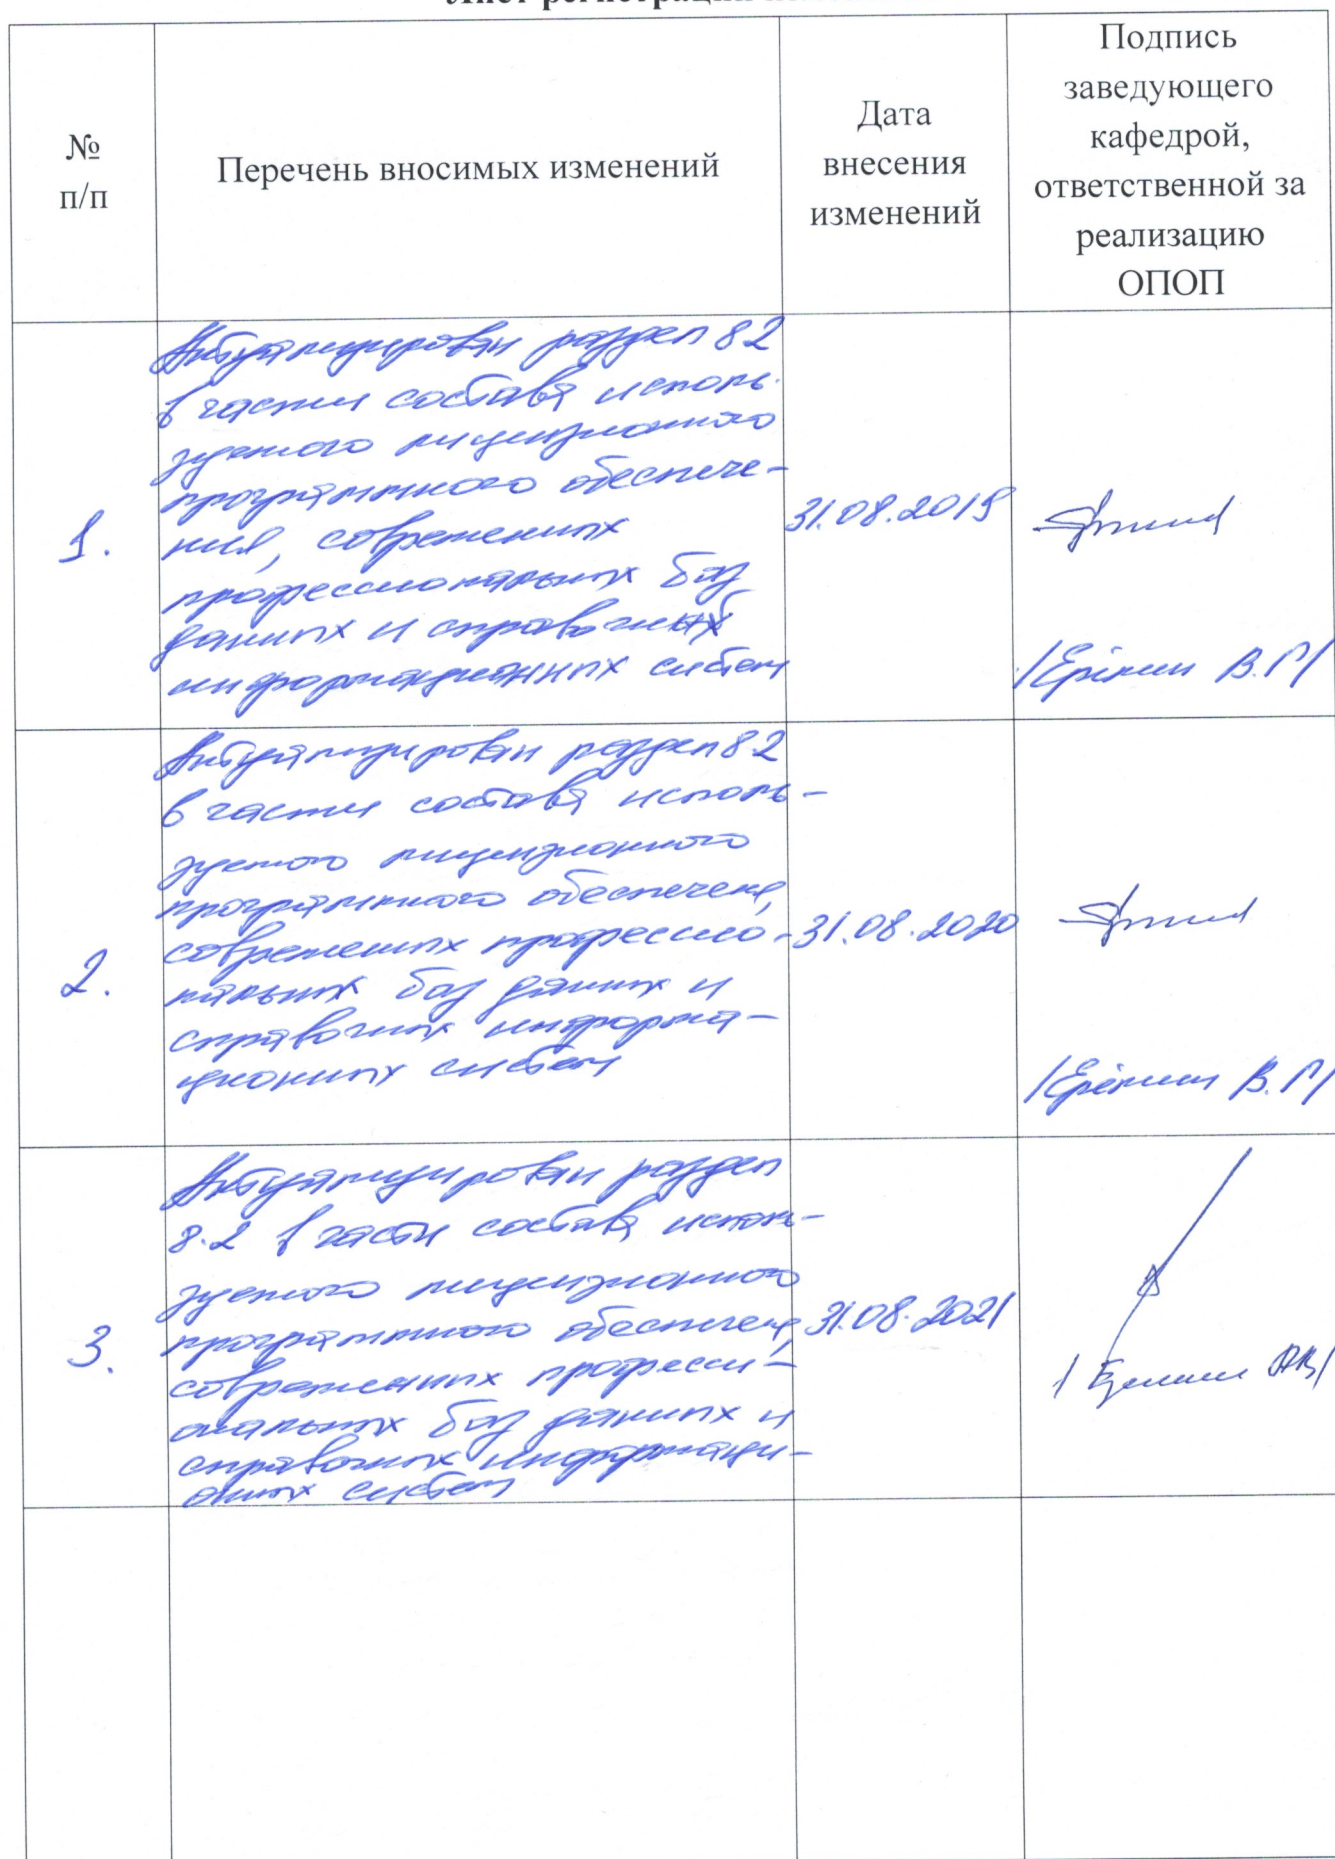 Лист регистрации
№
п/п
Перечень вносимых изменений
Дата
внесения
изменений
Подпись
заведующего
кафедрой,
ответственной за
реализацию
ОПОП
1.
Актуализирован раздел 8.2
в части состава исполь-
зуемого лицензионного
программного обеспече-
ния, современных
профессиональных баз
данных и справочных
информационных систем
31.08.2019
/Ерёмин В.Г/
2.
Актуализирован раздел 8.2
в части состава исполь-
зуемого лицензионного
программного обеспечения,
современных профессио-
нальных баз данных и
справочных информа-
ционных систем
31.08.2020
/Ерёмин В.Г/
3.
Актуализирован раздел
8.2 в части состава исполь-
зуемого лицензионного
программного обеспечения,
современных професси-
ональных баз данных и
справочных информаци-
онных систем
31.08.2021